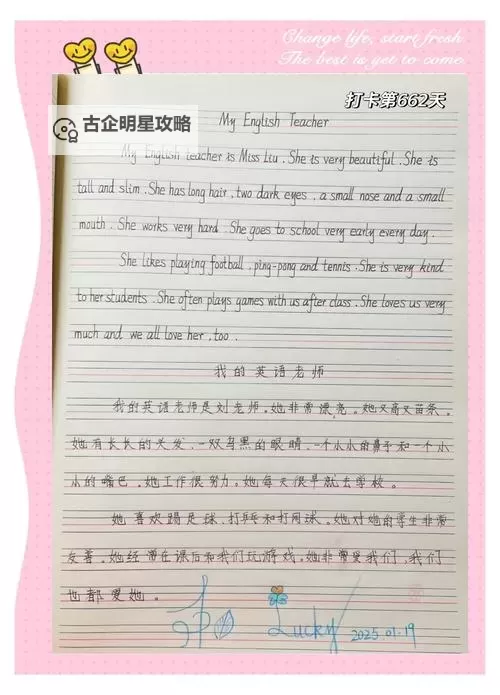 Change life, start fresh
The best is yet to come
打卡第662天
古企明星攻略
My English Teacher
My English teacher is Miss Liu. She is very beautiful. She is
tall and slim. She has long hair, two dark eyes, a small nose and a small
mouth. She works very hard. She goes to school very early every day.
She likes playing football, ping-pong and tennis. She is very kind
to her students. She often plays games with us after class. She loves us very
much and we all love her, too.
我的英语老师
我的英语老师是刘老师。她非常漂亮。她又高又苗条。
她有长长的头发,一双乌黑的眼睛,一个小小的鼻子和一个小
小的嘴巴。她工作很努力。她每天很早就去学校。
她喜欢踢足球、打乒乓和打网球。她对她的学生非常
友善。她经常在课后和我们玩游戏。她非常爱我们,我们
也都爱她。
Lucky 2025.01.19